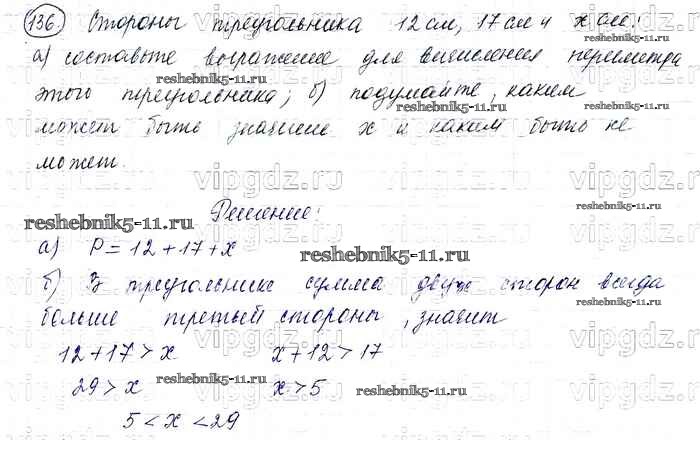 136. Стороны треугольника 12 см, 17 см и x см:
а) составьте выражение для вычисления периметра
reshebnik5-11.ru
этого треугольника; б) подумайте, каким
reshebnik5-11.ru
может быть значение x и каким быть не
может.
vipgdz.ru vipgdz.ru vipgdz.ru
Решение:
reshebnik5-11.ru
а) P = 12 + 17 + x
reshebnik5-11.ru
б) В треугольнике сумма двух сторон всегда
больше третьей стороны, значит
12 + 17 > x x + 12 > 17
29 > x reshebnik5-11.ru x > 5 reshebnik5-11.ru
5 < x < 29